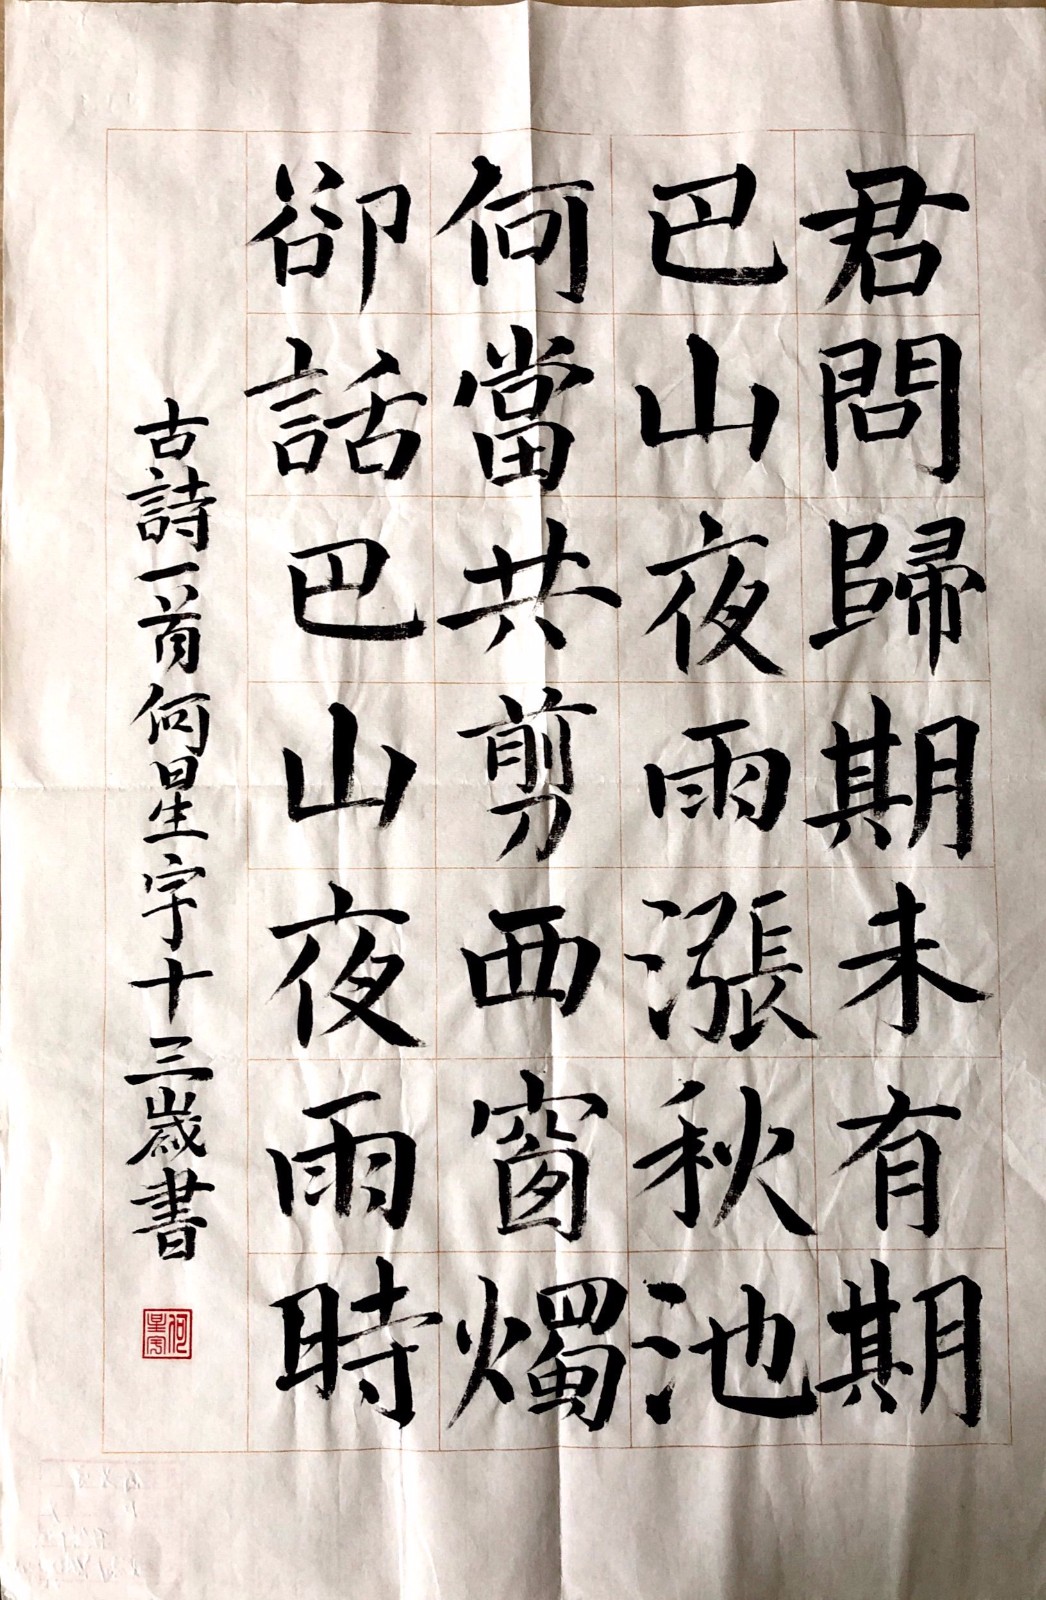 君問歸期未有期
巴山夜雨漲秋池
何當共剪西窗燭
卻話巴山夜雨時
古詩一首何星宇十三歲書
何星宇